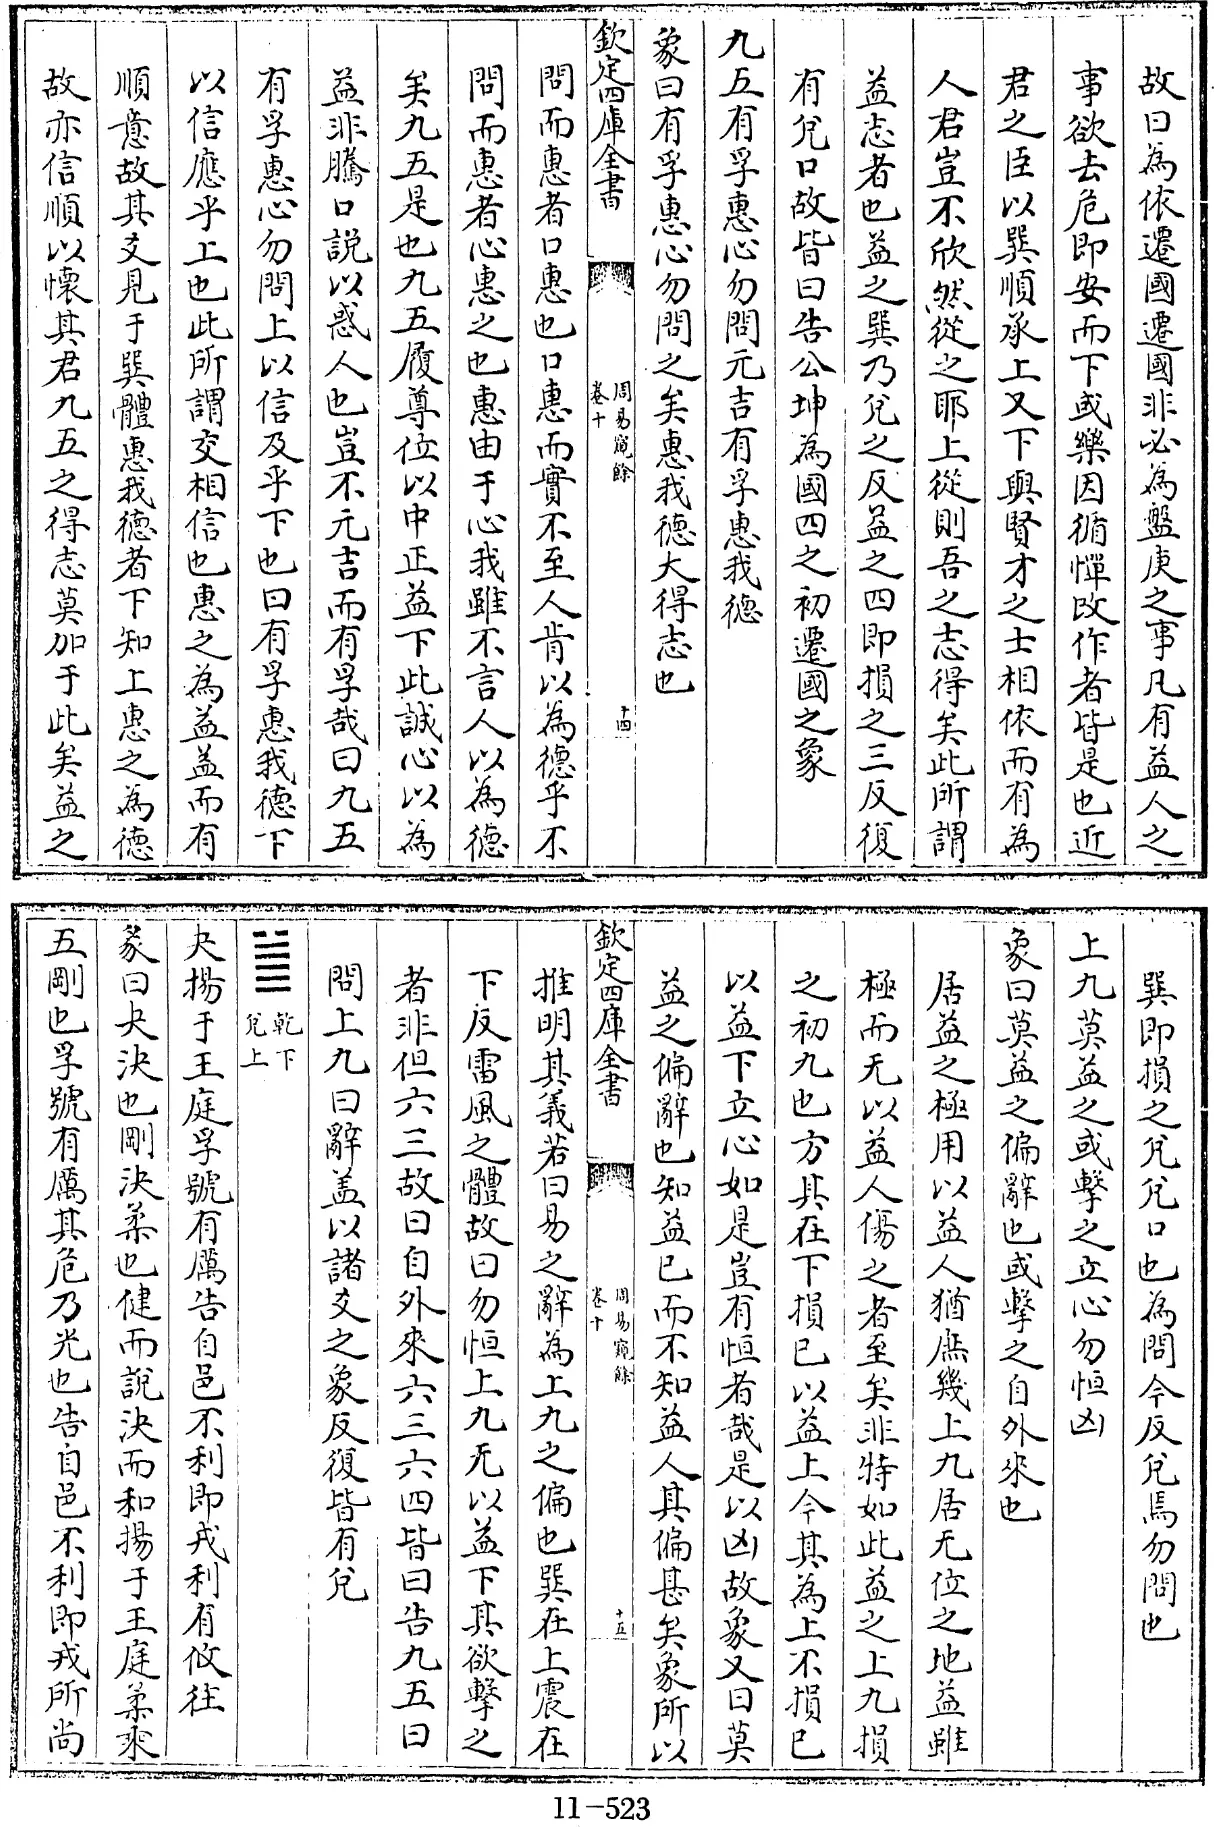 故曰為依遷國遷國非必為盤庚之事凡有益人之
事欲去危即安而下或樂因循憚改作者皆是也近
君之臣以巽順承上又下與賢才之士相依而有為
人君豈不欣然從之耶上從則吾之志得矣此所謂
益志者也益之巽乃兌之反益之四即損之三反復
有兌口故皆曰告公坤為國四之初遷國之象
九五有孚惠心勿問元吉有孚惠我德
象曰有孚惠心勿問之矣惠我德大得志也
欽定四庫全書
周易窺餘
卷十
十四
問而惠者口惠也口惠而實不至人肯以為德乎不
問而惠者心惠之也惠由于心我雖不言人以為德
矣九五是也九五履尊位以中正益下此誠心以為
益非騰口說以惑人也豈不元吉而有孚哉曰九五
有孚惠心勿問上以信及乎下也曰有孚惠我德下
以信應乎上也此所謂交相信也惠之為益益而有
順意故其爻見于巽體惠我德者下知上惠之為德
故亦信順以懷其君九五之得志莫加于此矣益之
巽即損之兌兌口也為問今反兌焉勿問也
上九莫益之或擊之立心勿恒凶
象曰莫益之偏辭也或擊之自外來也
居益之極用以益人猶庶幾上九居无位之地益雖
極而无以益人傷之者至矣非特如此益之上九損
之初九也方其在下損已以益上今其為上不損已
以益下立心如是豈有恒者哉是以凶故象又曰莫
益之偏辭也知益已而不知益人其偏甚矣象所以
欽定四庫全書
周易窺餘
卷十
十五
推明其義若曰易之辭為上九之偏也巽在上震在
下反雷風之體故曰勿恒上九无以益下其欲擊之
者非但六三故曰自外來六三六四皆曰告九五曰
問上九曰辭盖以諸爻之象反復皆有兌
䷪
乾下
兌上
夬揚于王庭孚號有厲告自邑不利即戎利有攸往
彖曰夬決也剛決柔也健而說決而和揚于王庭柔乘
五剛也孚號有厲其危乃光也告自邑不利即戎所尚
11-523